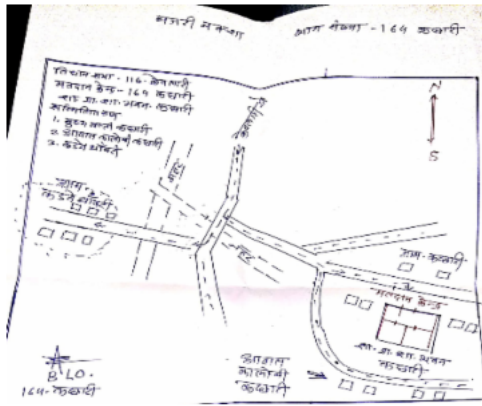 नजरी नक्शा
भाग संख्या - 164 कछारी
विधान सभा - 116 - केवलारी
मतदान केन्द्र - 164 कछारी
शा. प्रा. शा. भवन - कछारी
1. मुख्य बस्ती कछारी
2. आवास कालोनी कछारी
N
S
नहर
ग्राम
नहर
ग्राम - कछारी
मतदान केन्द्र
शा. प्रा. शा. भवन
कछारी
आवास
कालोनी
कछारी
B L O.
164 - कछारी